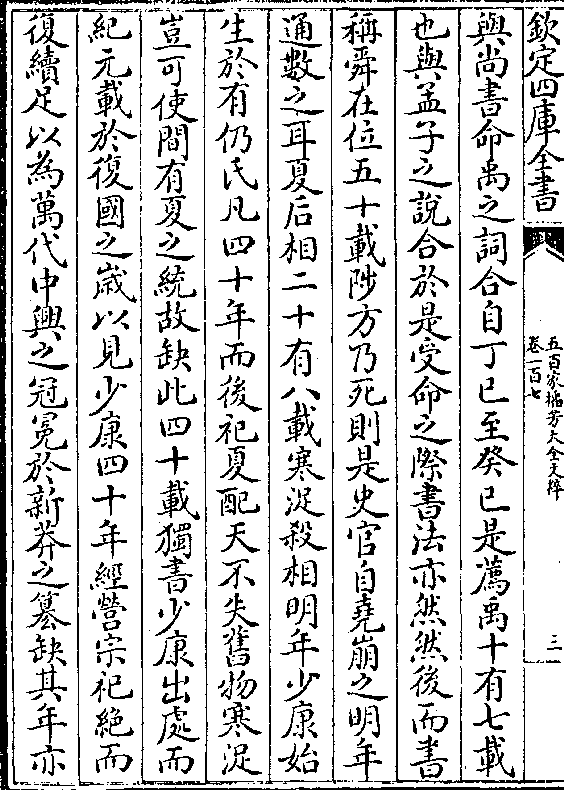 欽定四庫全書
五百家播芳大全文粹
卷一百七
三
與尚書命禹之詞合自丁巳至癸巳是薦禹十有七載
也與孟子之說合於是受命之際書法亦然然後而書
稱舜在位五十載陟方乃死則是史官自堯崩之明年
通數之耳夏后相二十有八載寒浞殺相明年少康始
生於有仍氏凡四十年而後祀夏配天不失舊物寒浞
豈可使間有夏之統故缺此四十載獨書少康出處而
紀元載於復國之歲以見少康四十年經營宗祀絶而
復續足以為萬代中興之冠冕於新莽之簒缺其年亦